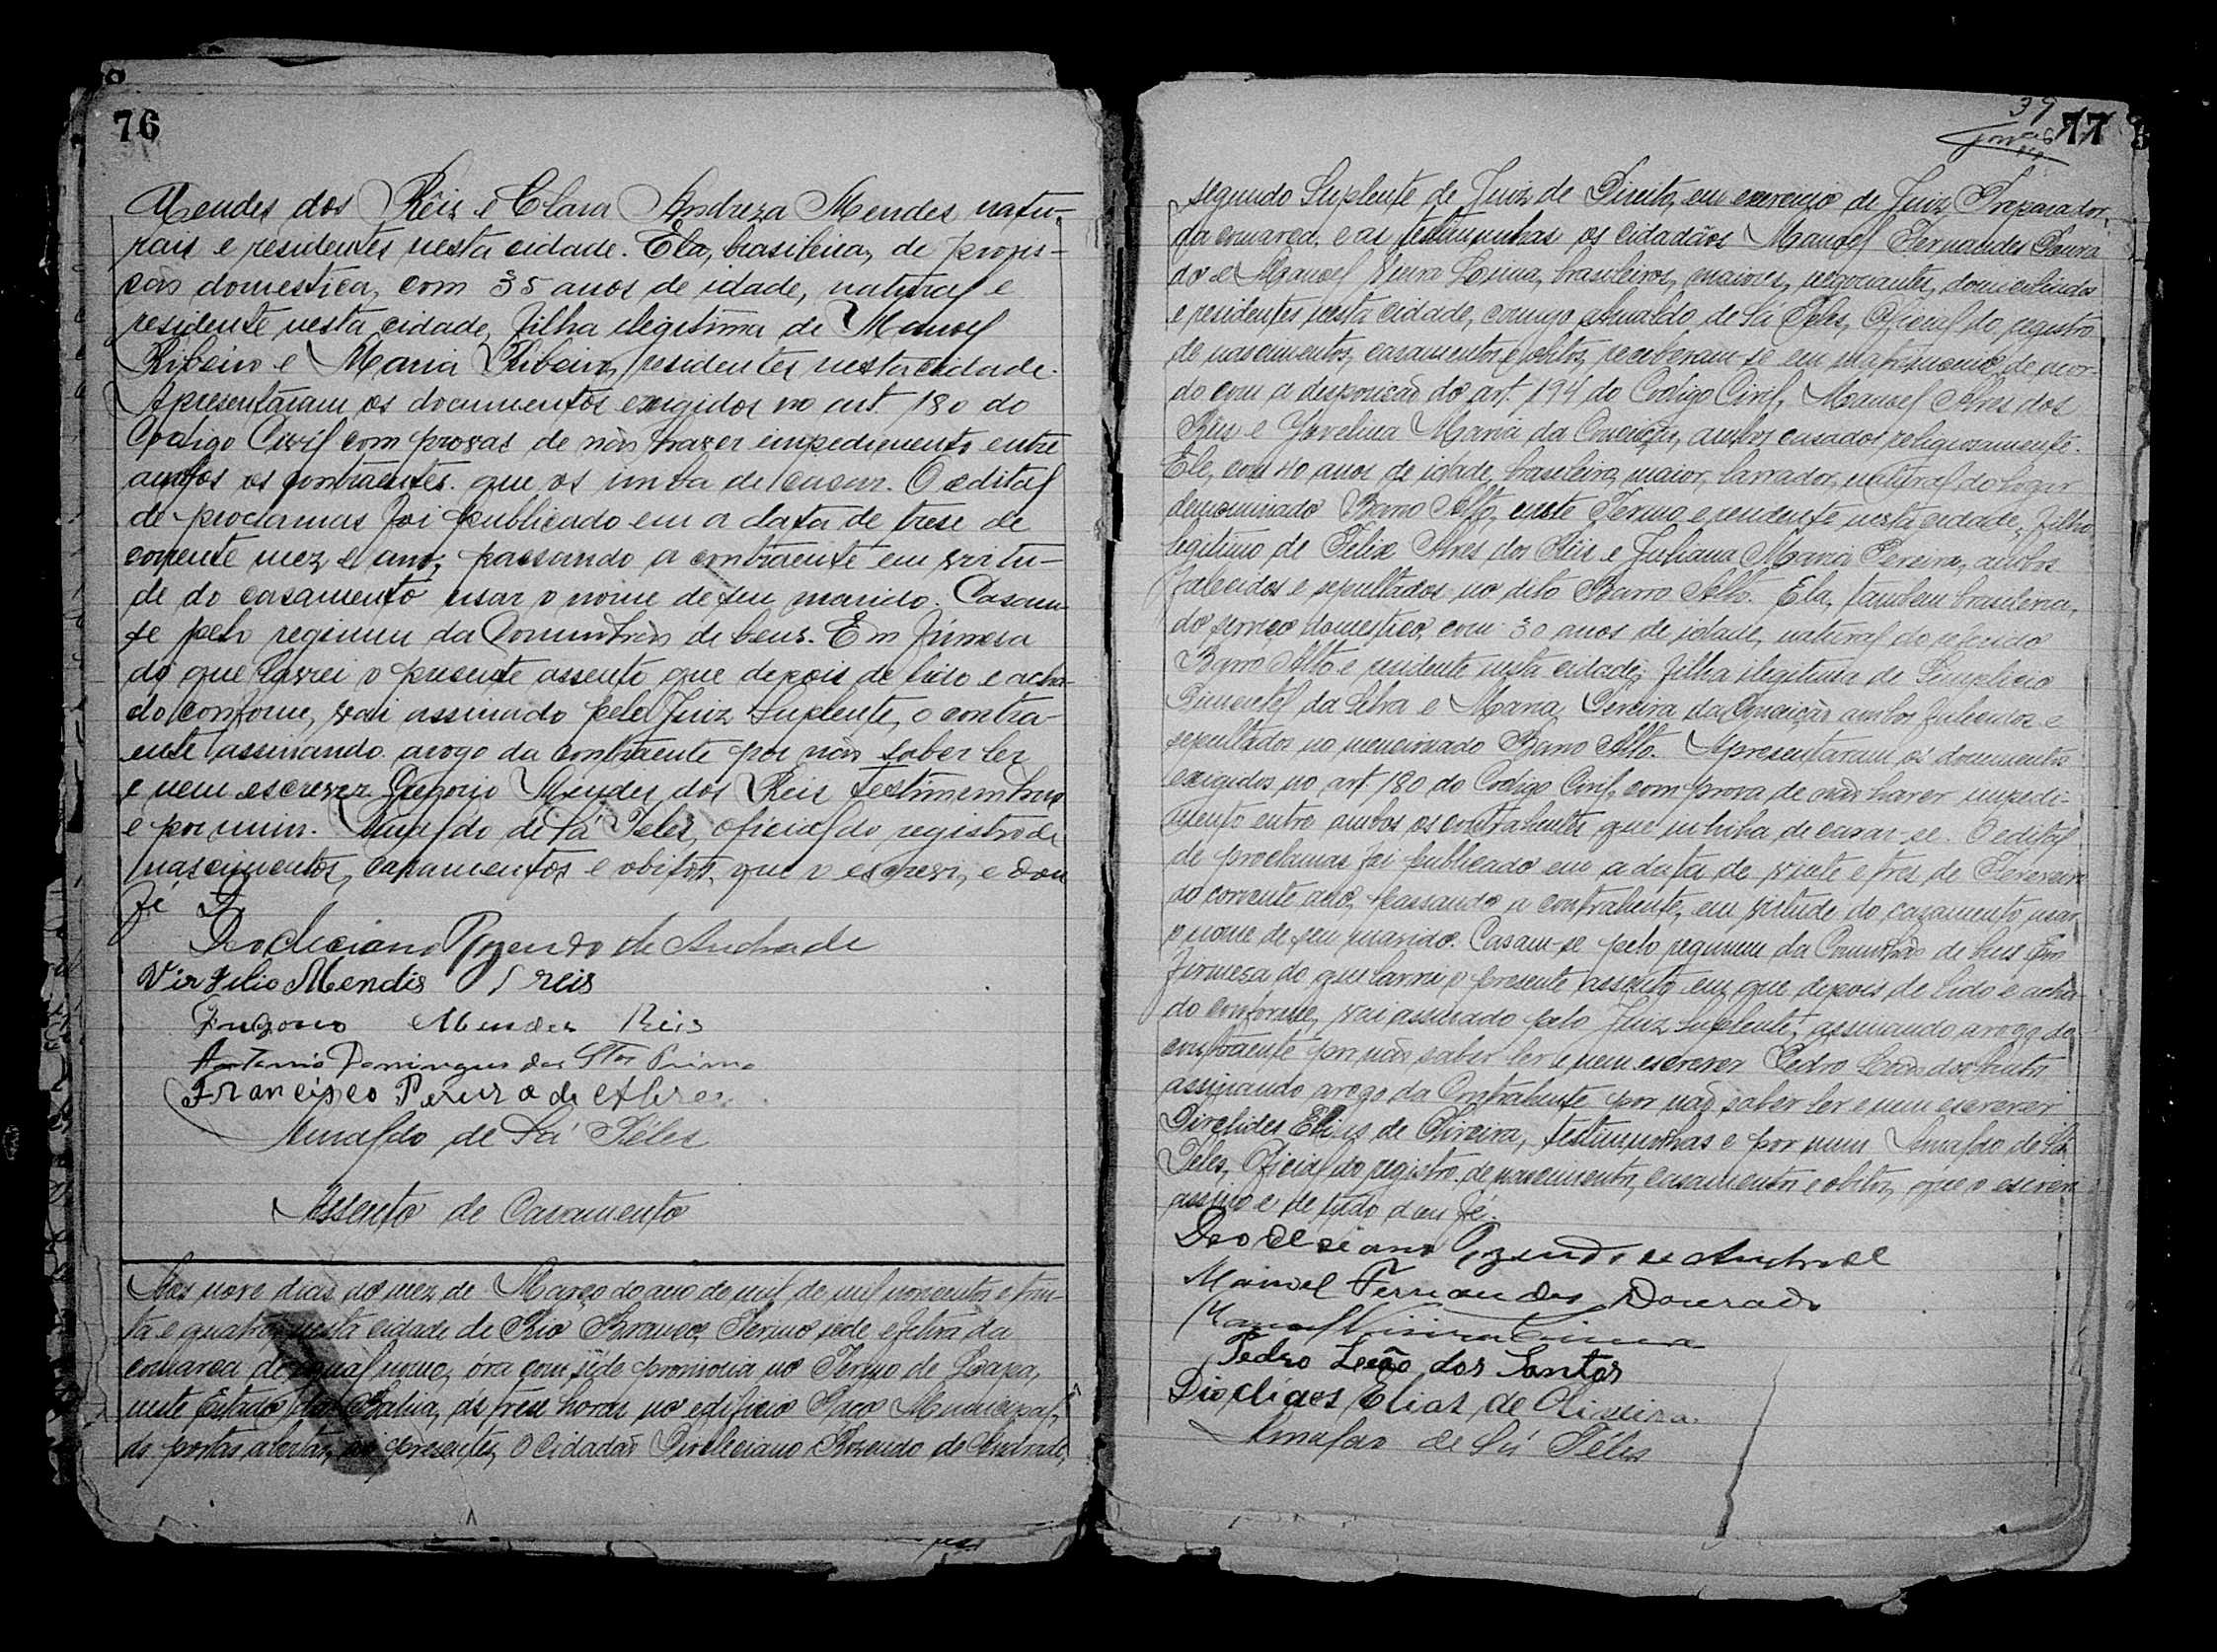 76
Mendes dos Reis e Clara Andreza Mendes natu-
rais e residentes nesta cidade. Ela, brasileira, de profis-
são domestica, com 35 anos de idade, natural e
residente nesta cidade, filha ilegitima de Manoel
Ribeiro e Maria Ribeiro, residentes nesta cidade.
Apresentaram os documentos exigidos no art. 180 do
Codigo Civil com provas de não haver impedimento entre
ambos os contraentes que os iniba de casar. O edital
de proclamas foi publicado em a data de trese de
corrente mez e ano, passando a contraente em virtu-
de do casamento usar o nome de seu marido. Casam-
se pelo regimen da Comunhão de bens. Em firmesa
do que lavrei o presente assento que depois de lido e acha-
do conforme, vai assinado pelo Juiz Suplente, o contra-
ente assinando arogo da contraente por não saber ler
e nem escrever Gregorio Mendes dos Reis testimunhas
e por mim. Arnaldo de Sá Teles, oficial do registro de
nascimentos, casamentos e obitos, que o escrevi, e dou
fé
Deocleciano Rozendo de Andrade
Virgilio Mendes Reis
Gregorio Mendes Reis
Antonio Domingues dos Stos Primo
Francisco Pereira de
Arnaldo de Sá Téles
Assento de Casamento
Aos nove dias do mez de Março do ano de mil de mil novecentos e trin-
ta e quatro, nesta cidade de Rio Branco, Termo sede efetiva da
comarca de igual nome, óra com séde provisoria no Termo de Lapa,
neste Estado da Bahia, ás tres horas no edificio Paço Municipal,
de portas abertas, ahi presentes, O cidadão Diocleciano Rozendo de Andrade,
39
77
segundo Suplente de Juiz de Direito, em exercicio de Juiz Preparador,
da comarca, e as testimunhas os cidadãos Manoel Fernandes Doura
do e Manoel Vieira Lima, brasileiros, maiores, negociantes, domiciliados
e residentes nesta cidade, comigo Arnaldo de Sá Teles, Oficial do registro
de nascimentos, casamentos e obitos, receberam-se em matrimonio, de acor-
do com a disposição do art. 194 do Codigo Civil, Manoel Alves dos
Reis e Jovelina Maria da Conceição, ambos casados religiosamente.
Ele, com 40 anos de idade, brasileiro, maior, lavrador, natural do logar
denominado Barro Alto, neste Termo e residente nesta cidade, filho
legitimo de Felix Alves dos Reis e Juliana Maria Pereira, ambos
falecidos e sepultados no dito Barro Alto. Ela, tambem brasileira,
do serviço domestico, com 30 anos de idade, natural do referido
Barro Alto e residente nesta cidade, filha ilegitima de Simplicio
Pimentel da Silva e Maria Pereira da Conceição ambos falecidos e
sepultados no mencionado Barro Alto. Apresentaram os documentos
exigidos no art. 180 do Codigo Civil, com prova de não haver impedi-
mento entre ambos os contrahentes que inhiba de casar-se. O edital
de proclamas foi publicado em a data de vinte e tres de Fevereiro
do corrente ano, passando a contrahente, em virtude do cazamento, usar
o nome de seu marido. Casam-se pelo regimem da Comunhão de bens. Em
firmesa do que lavrei o presente assento em que depois de lido e acha-
do conforme, vai assinado pelo Juiz Suplente, assinando arogo do
contraente por não saber ler e nem escrever Pedro Leão dos Santos
assinando arogo da Contrahente por não saber ler e nem escrever
Dioclides Elias de Oliveira, testimunhas e por mim Arnaldo de Sá
Teles, Oficial do registro de nascimentos, casamentos e obitos, que o escrevi
assino e de tudo dou fé.
Deocleciano Rozendo de Andrade
Manoel Fernandes Dourado
Manoel Vieira Lima
Pedro Leão dos Santos
Dioclides Elias de Oliveira
Arnaldo de Sá Téles